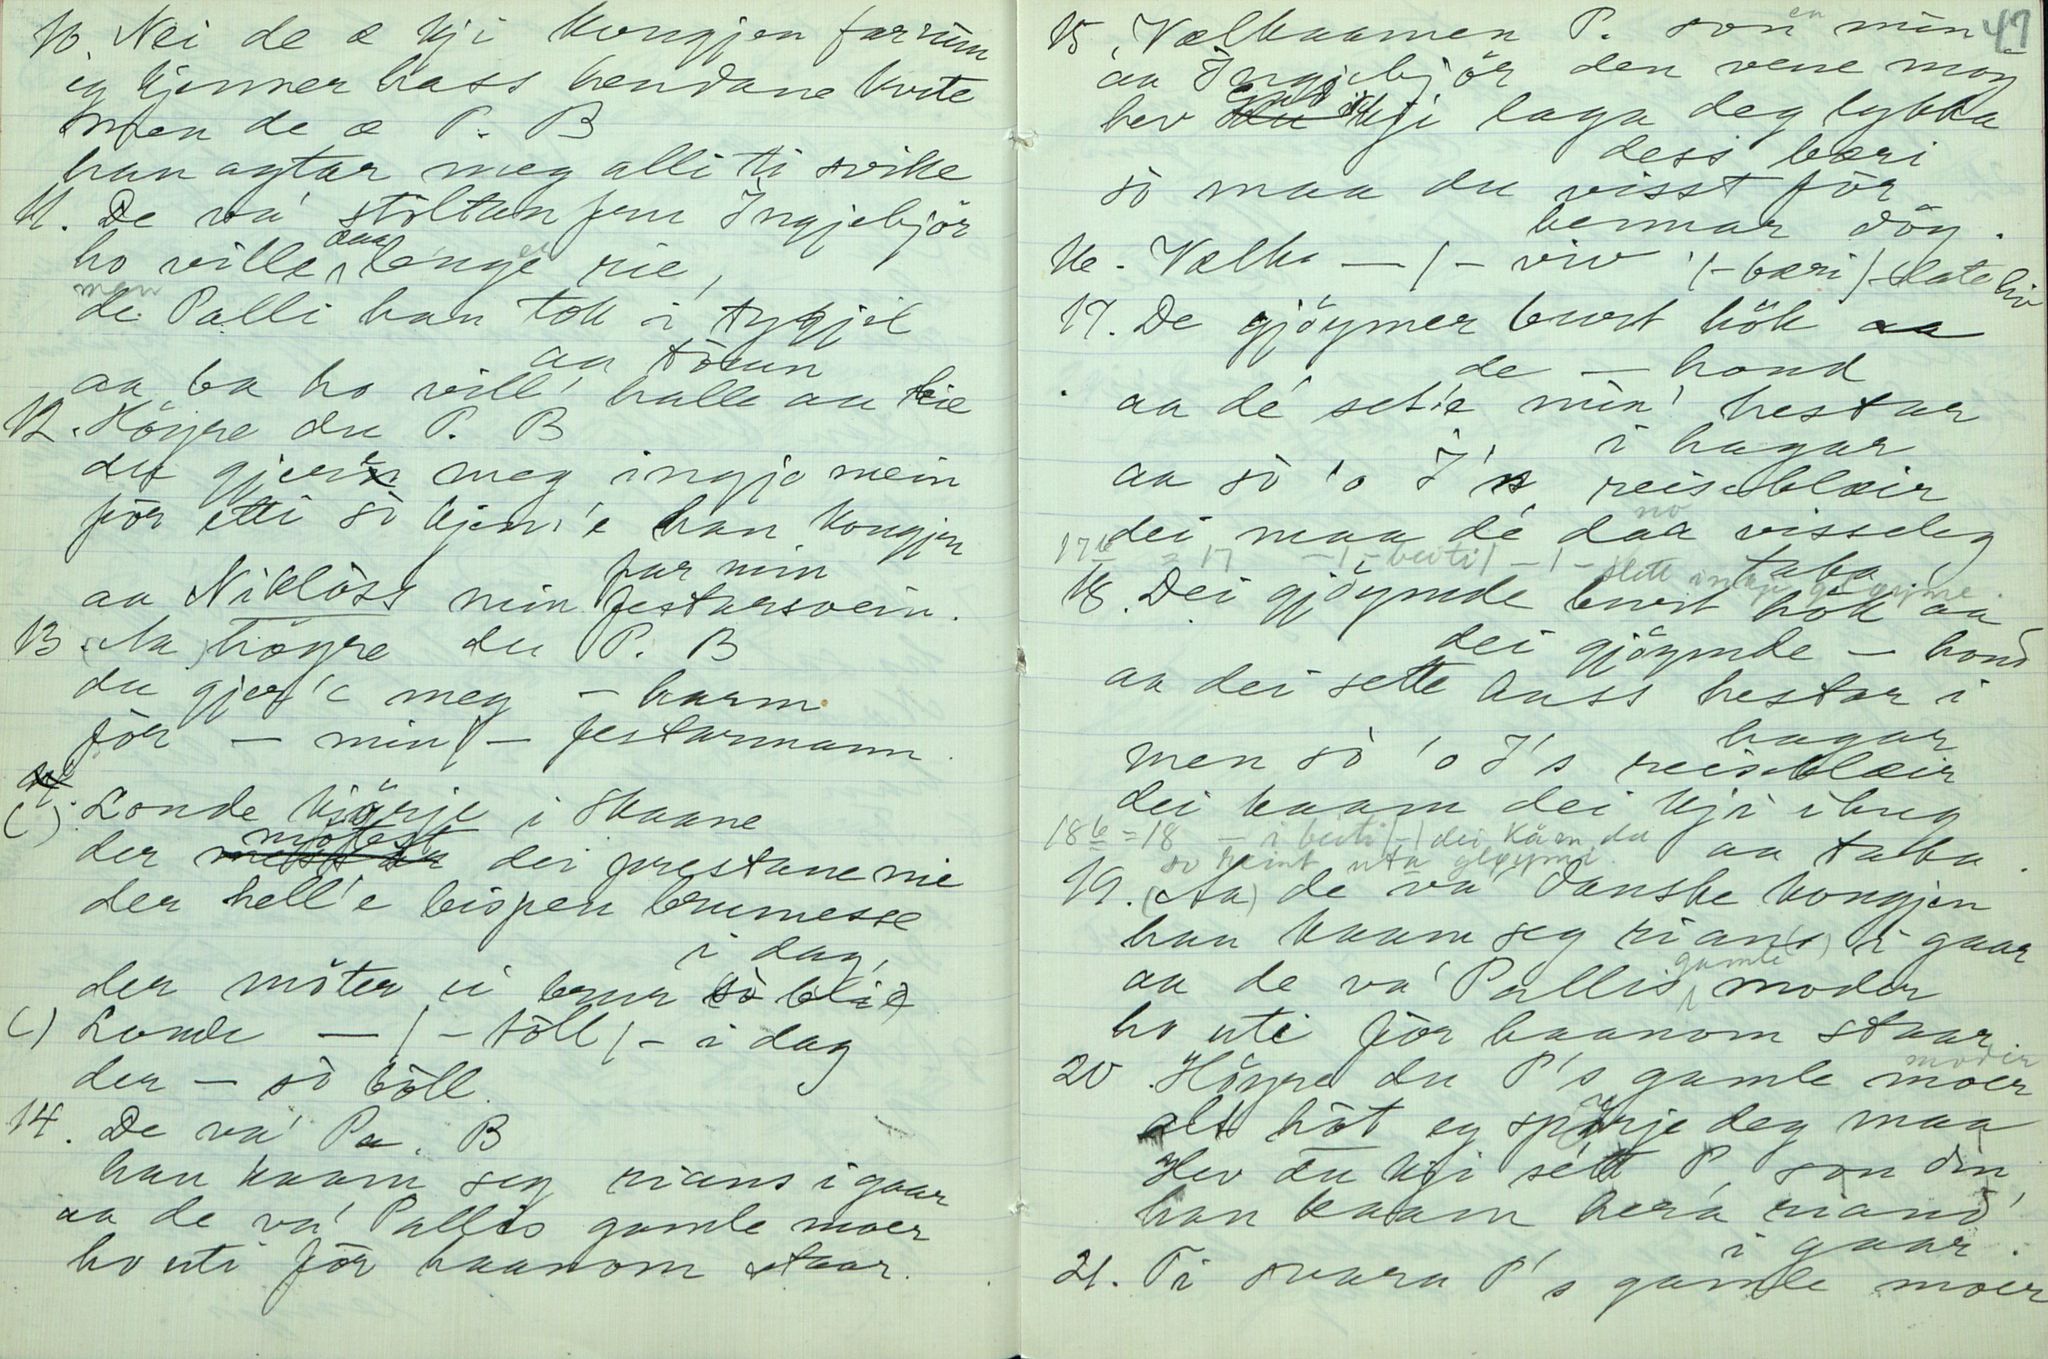 10. Nei de æ kji kongjen far min
eg kjenner hass hendane kvite
men de æ P. B
han agtar meg alli ti svike
11. De va' stoltan fru Ingjebjör
ho ville daa lenger rie,
men
de Palli han tok i tygjil
aa töum
aa ba ho vill' halle aa bie
12. Höyre du P. B
du gjerer meg ingjo mein
för etti so kjem'e han kongjen
far min
aa Niklöss min festarsvein.
13. (Aa) höyre du P. B
du gjer'e meg – harm
för – min /– festarmann.
( ) Londe kjörje i Skaane
der mötest dei prestane nie
der hell'e bispen brumesse
i dag,
der möter ei brur so bli(d)
( ) Londe — /– töll /– i dag
der – so böll.
14. De va' Pa. B
han kaam seg rians i gaar
aa de va' Pallis gamle moer
ho uti för haanom staar.
47
15. Velkaamen P. son en min
aa Ingjebjör den vene möy
hev Gud kji laga deg lykka
dess bæri
so maa du visst för
hennar döy.
16. Velko — /– viv /– bæri /– late liv
17. De gjöymer burt hök aa
de — hond
aa dé set'e min' hestar
i hagar
aa so 'o I's reiseklæir
dei maa dé daa no visseleg
taka
17b = 17 — /– beiti /– /– slett inkje gløyme.
18. Dei gjöymde burt hök aa
dei gjöymde — hond
aa dei sette hass hestar i
hagar
men so 'o I's reiseklæir
dei kaam dei kji ihug
aa taka.
18b = 18 — i beiti /–/ dei kåm da
so seint uta gløymi.
19. (Aa) de va' Danske kongjen
han kaam seg rians( ) i gaar
aa de va' Pallis gamle moder
ho uti för haanom staar
20. Höyre du P's gamle moer
modir
alt höt eg spörje deg maa
Hev du kji sétt P. son din
han kaam herá riand'
i gaar.
21. Ti svara P's gamle moer